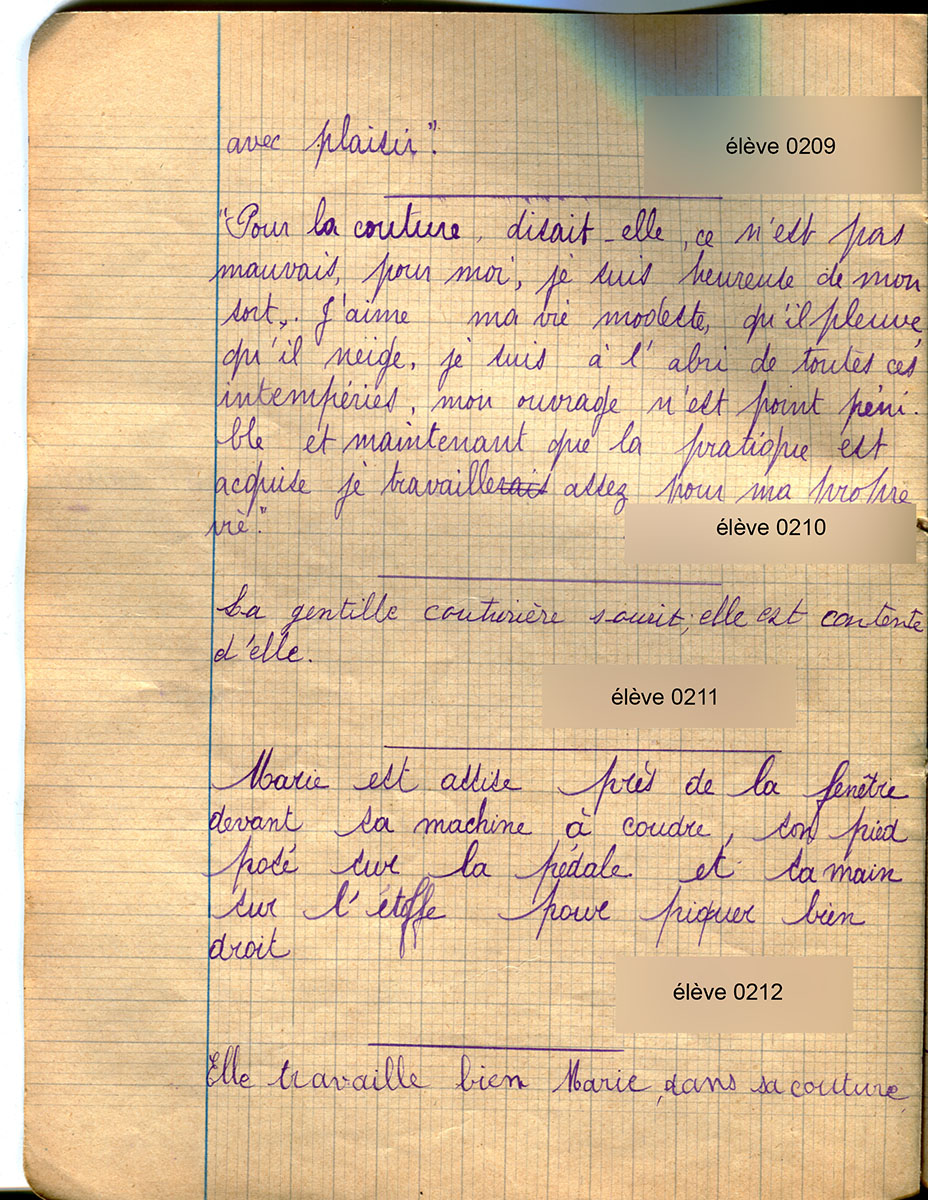 avec plaisir".
élève 0209
"Pour la couture, disait-elle, ce n'est pas
mauvais, pour moi, je suis heureuse de mon
sort,. J'aime ma vie modeste, qu'il pleuve,
qu'il neige, je suis à l'abri de toutes ces
intempéries, mon ouvrage n'est point péni-
ble et maintenant que la pratique est
acquise je travaillerais assez pour ma propre
vie".
élève 0210
La gentille couturière sourit; elle est contente
d'elle.
élève 0211
Marie est assise près de la fenêtre
devant sa machine à coudre, son pied
posé sur la pédale et sa main
sur l'étoffe pour piquer bien
droit
élève 0212
Elle travaille bien Marie, dans sa couture,